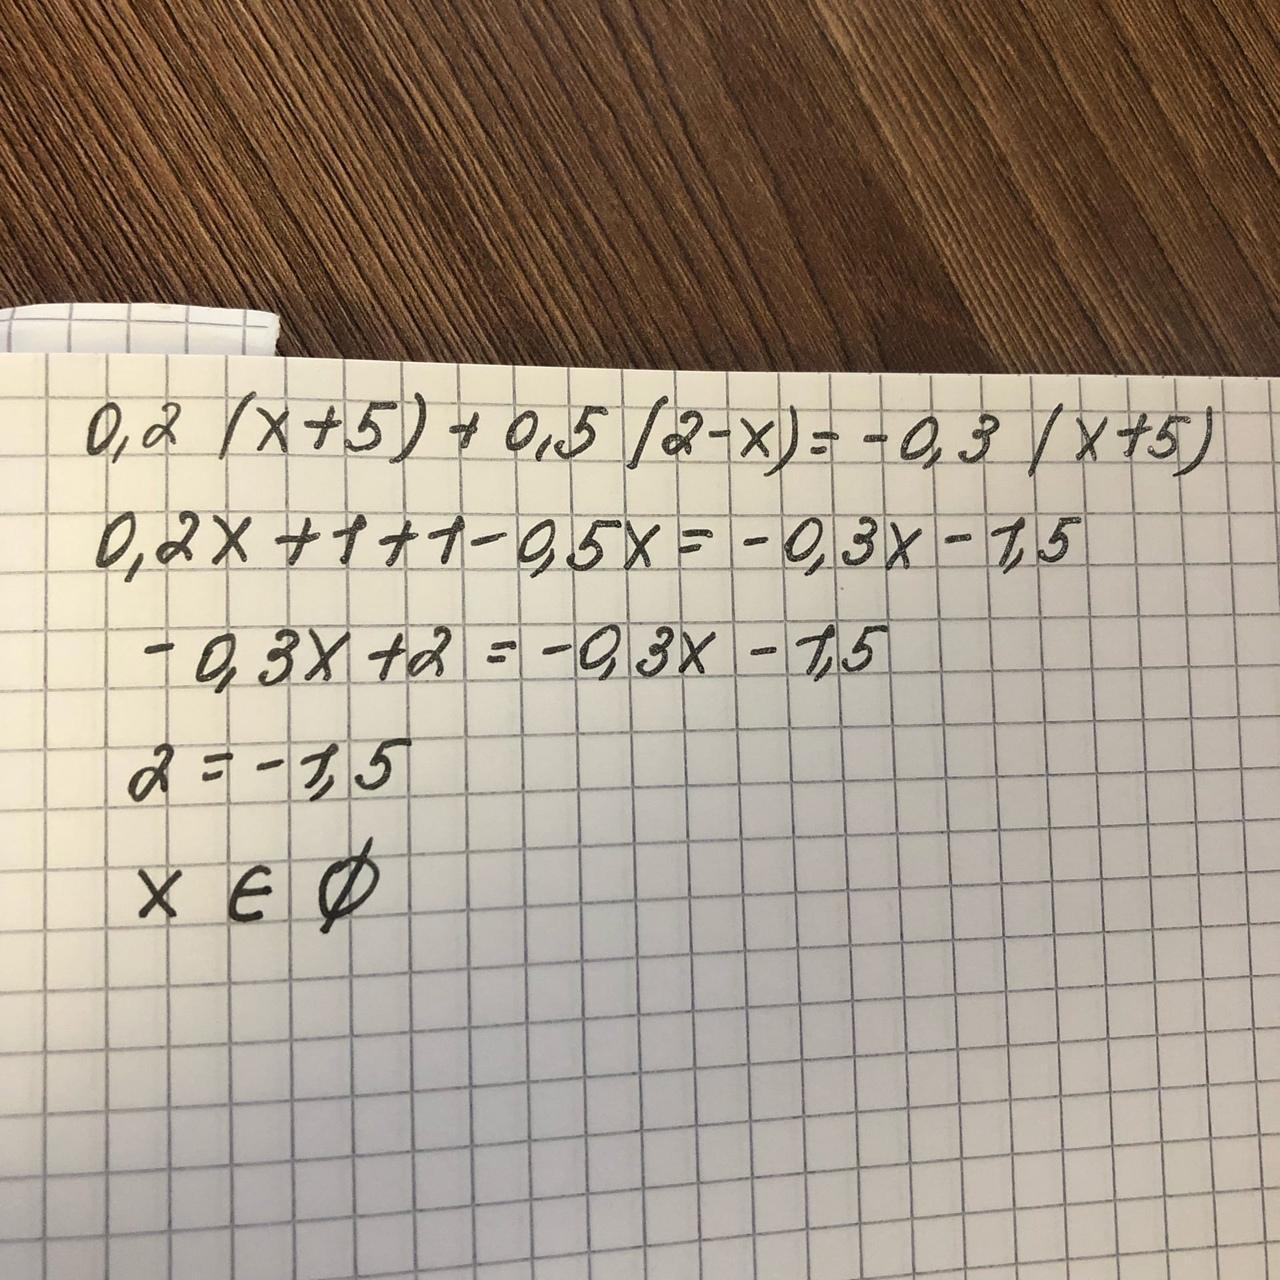 0,2 (x+5) + 0,5 (2-x) = -0,3 (x+5)
0,2x +1+1-0,5x = -0,3x -1,5
-0,3x +2 = -0,3x -1,5
2 = -1,5
x ∈ ∅